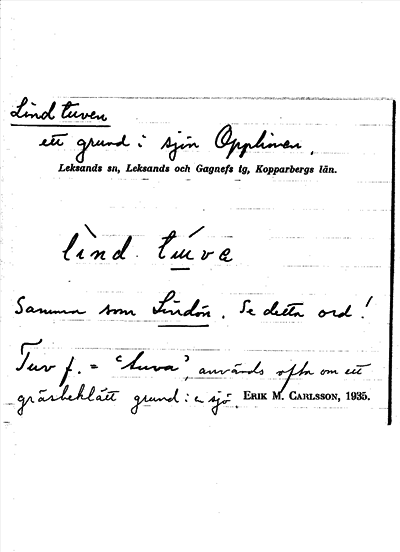 Lindtuven
ett grund i sjön Opplimen.
Leksands sn, Leksands och Gagnefs tg, Kopparbergs län.
lìnd tùvą
Samma som Lindön. Se detta ord!
Tuv f. = 'tuva', används ofta om ett
gräsbeklätt grund i en sjö. ERIK M. CARLSSON, 1935.